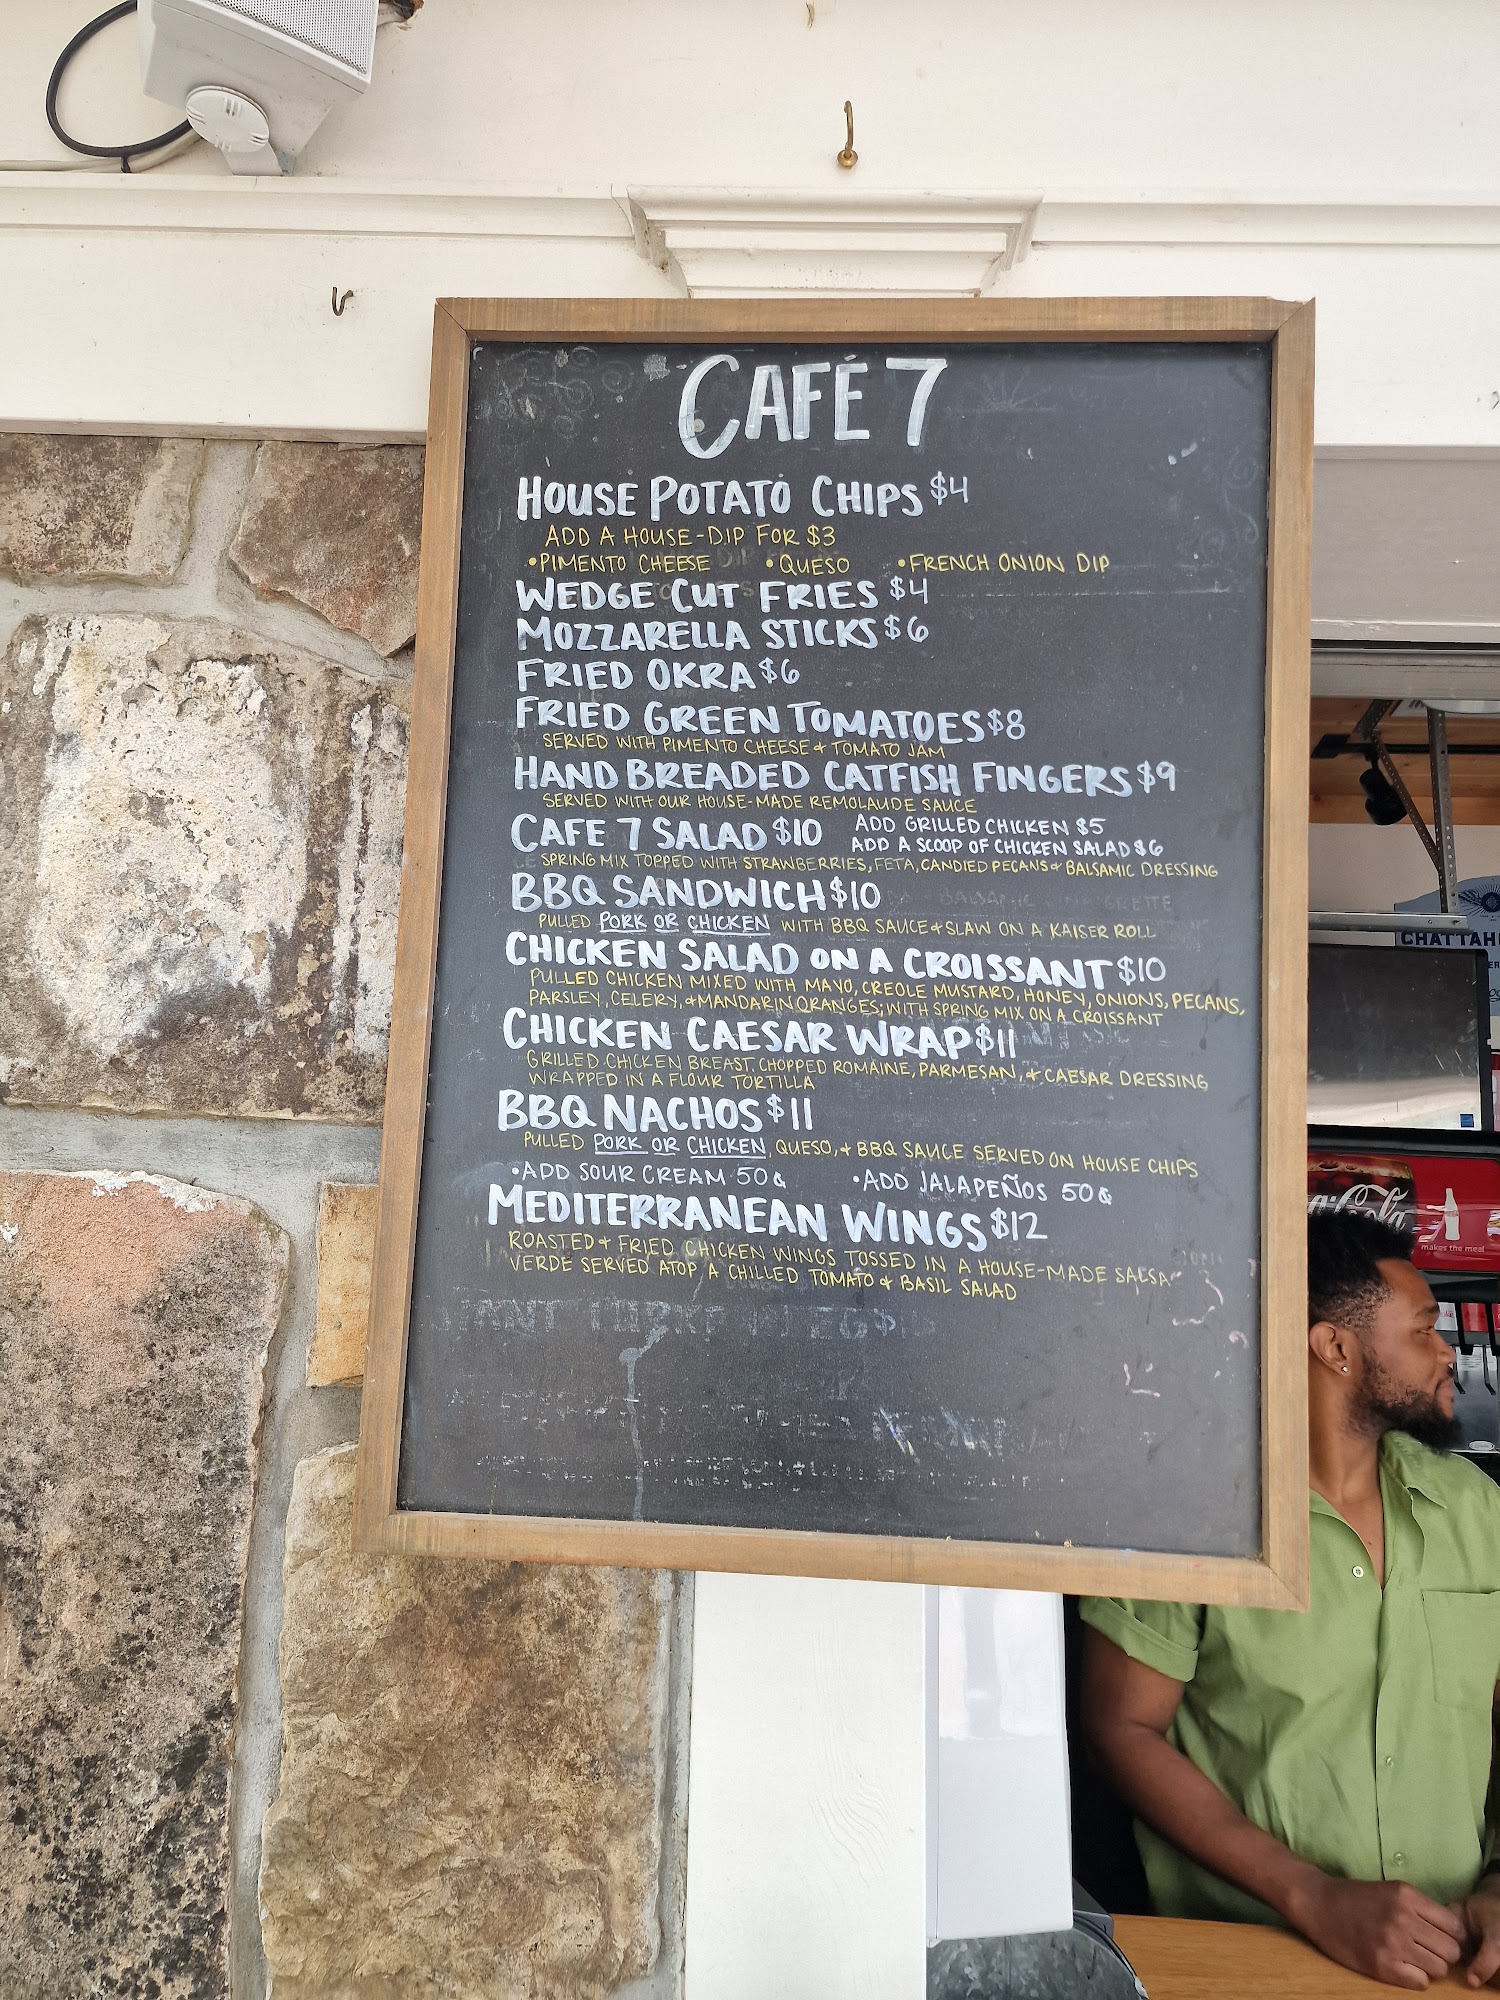 CAFÉ 7
HOUSE POTATO CHIPS $4
ADD A HOUSE-DIP FOR $3
•PIMENTO CHEESE •QUESO •FRENCH ONION DIP
WEDGE CUT FRIES $4
MOZZARELLA STICKS $6
FRIED OKRA $6
FRIED GREEN TOMATOES $8
SERVED WITH PIMENTO CHEESE & TOMATO JAM
HAND BREADED CATFISH FINGERS $9
SERVED WITH OUR HOUSE-MADE REMOLAUDE SAUCE
CAFE 7 SALAD $10 ADD GRILLED CHICKEN $5
ADD A SCOOP OF CHICKEN SALAD $6
SPRING MIX TOPPED WITH STRAWBERRIES, FETA, CANDIED PECANS & BALSAMIC DRESSING
BBQ SANDWICH $10
PULLED PORK OR CHICKEN WITH BBQ SAUCE & SLAW ON A KAISER ROLL
CHICKEN SALAD ON A CROISSANT $10
PULLED CHICKEN MIXED WITH MAYO, CREOLE MUSTARD, HONEY, ONIONS, PECANS,
PARSLEY, CELERY, & MANDARIN ORANGES; WITH SPRING MIX ON A CROISSANT
CHICKEN CAESAR WRAP $11
GRILLED CHICKEN BREAST, CHOPPED ROMAINE, PARMESAN, & CAESAR DRESSING
WRAPPED IN A FLOUR TORTILLA
BBQ NACHOS $11
PULLED PORK OR CHICKEN, QUESO, & BBQ SAUCE SERVED ON HOUSE CHIPS
•ADD SOUR CREAM 50¢ •ADD JALAPEÑOS 50¢
MEDITERRANEAN WINGS $12
ROASTED & FRIED CHICKEN WINGS TOSSED IN A HOUSE-MADE SALSA
VERDE SERVED ATOP A CHILLED TOMATO & BASIL SALAD
makes the meal